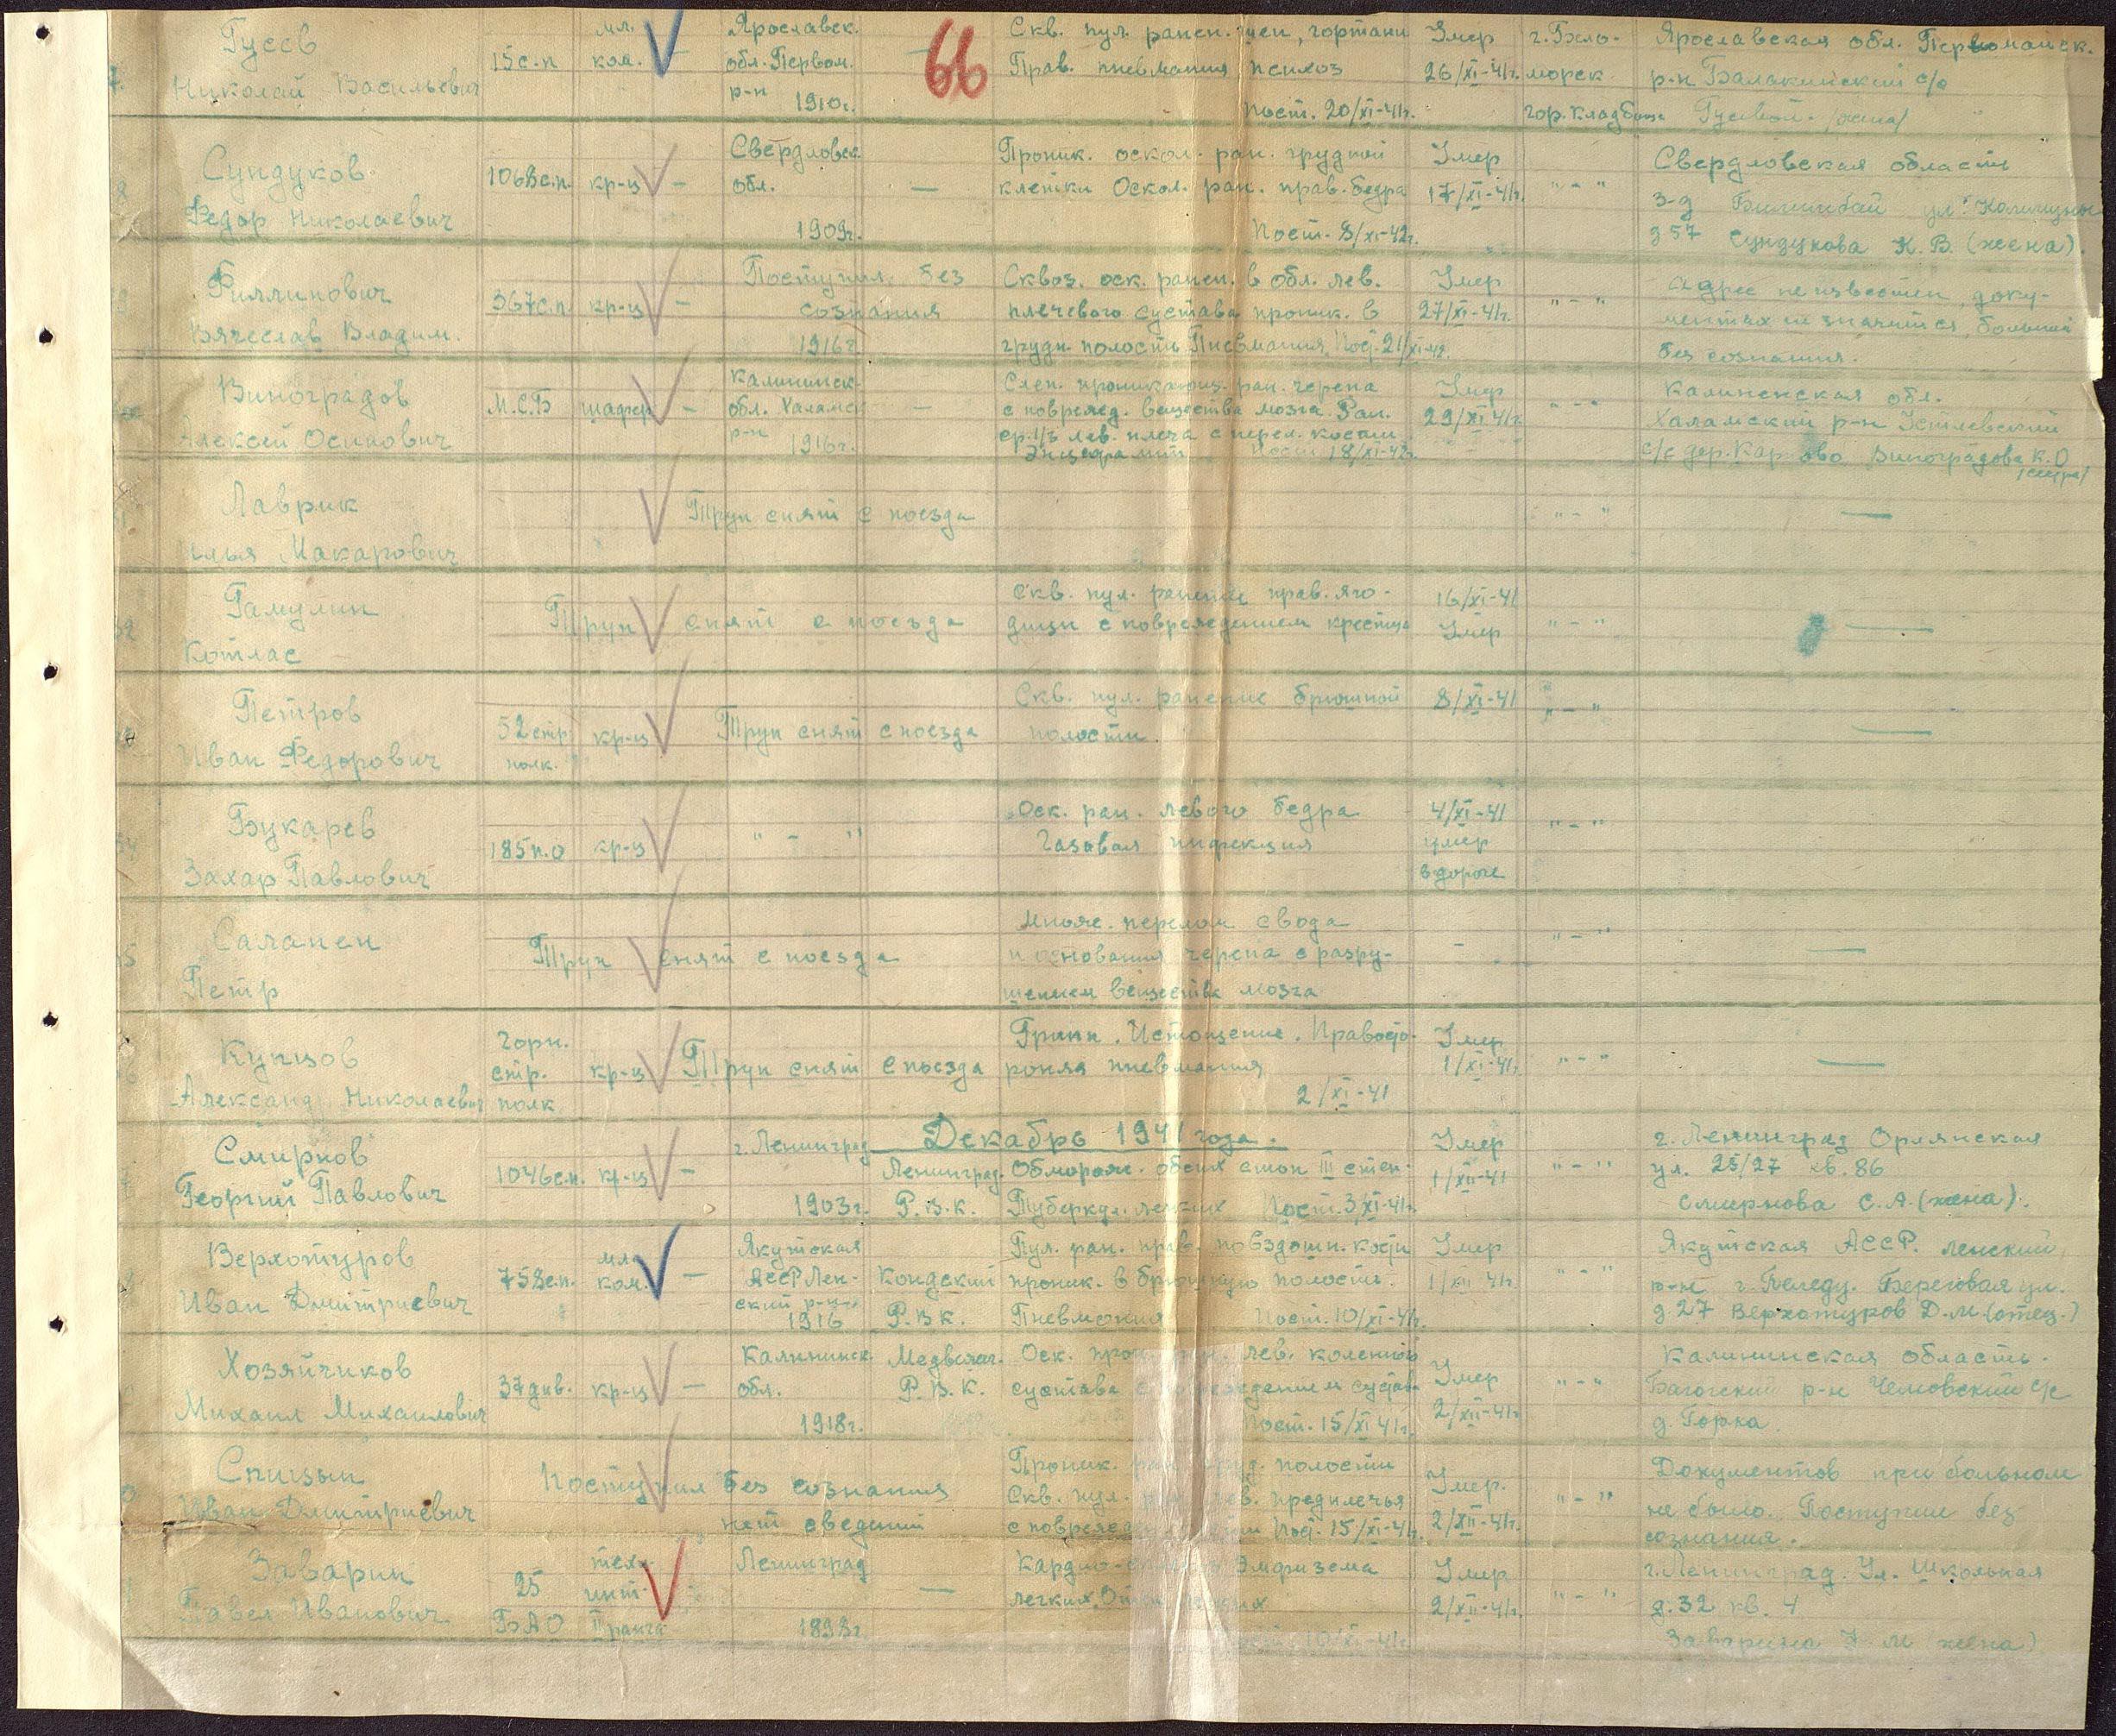 Гусев
Николай Васильевич
15 с.п
мл.
ком.
Ярославск.
обл. Первом.
р-н
1910г.
66
Скв. пул. ранен. шеи, гортани
Прав. пневмания психоз
Пост. 20/XI-41г.
Умер
26/XI-41г.
г. Бело-
морск
гор. кладбище
Ярославская обл. Первомайск.
р-н Балакинский с/с
Гусевой (жена)
Сундуков
Федор Николаевич
1068 с.п.
кр-ц –
Свердловск.
обл.
1909г.
—
Проник. оскол. ран. грудной
клетки Оскол. ран. прав. бедра
Пост. 8/XI-42г.
Умер
17/XI-41г.
" - "
Свердловская область
з-д Билимбай ул.
д 57 Сундукова К. В. (жена)
Филлипович
Вячеслав Владим.
367 с.п.
кр-ц –
Поступил без
сознания
1916г
Сквоз. оск. ранен. в обл. лев.
плечевого сустава проник. в
грудн полость Пневмания. Пост. 21/XI-42.
Умер
27/XI-41г.
" - "
Адрес не известен, доку-
ментах не значится, больной
без сознания.
Виноградов
Алексей Осипович
М.С.Б
шофер –
Калининск.
обл. Халамск
р-н
1916г.
—
Слеп. проникающ. ран. черепа
с поврежд. вещества мозга. Ран.
ср. 1/3 лев. плеча с перел. кости
Энцефалит Пост 18/XI-42г.
Умер
29/XI 41г.
" - "
Калининская обл.
Халамский р-н Устлевский
с/с дер. Карпово Виноградова К.О
/сестра/
Лаврик
Илья Макарович
Труп снят с поезда
" - "
—
Гамулин
Котлас
Труп снят с поезда
Скв. пул. ранение прав. яго-
дицы с повреждением крестца
16/XI-41
Умер
" - "
—
Петров
Иван Федорович
52 стр
полк.
кр-ц
Труп снят с поезда
Скв. пул. ранение брюшной
полости.
8/XI-41
" - "
—
Букарев
Захар Павлович
185 п.о
кр-ц
" - "
Оск. ран. левого бедра
Газовая инфекция
4/XI-41
умер
в дороге
" - "
Салапен
Петр
Труп снят с поезда
множ. перелом свода
и основания черепа с разру-
шением вещества мозга
-
" - "
—
Купцов
Александ Николаевич
Горн.
стр.
полк
кр-ц
Труп снят с поезда
Грипп. Истощение. Правосто-
роняя пневмания
2/XI-41
Умер
1/XI-41г.
" - "
—
Декабрь 1941 года.
Смирнов
Георгий Павлович
1046 с.п.
кр-ц –
г. Ленинград
1903г.
Ленинград.
Р.В.К.
Обморож. обеих стоп III степ.
Туберкул. легких Пост. 3/XI-41г.
Умер
1/XII-41
" - "
г. Ленинград Орлянская
ул. 25/27 кв. 86
Смирнова С.А. (жена).
Верхотуров
Иван Дмитриевич
758 с.п.
мл.
ком. –
Якутская
АССР Лен-
ский р-н
1916
Кондский
Р.В К.
Пул. ран. прав. повздошн. кости
проник. в брюшную полость.
Пневмония Пост. 10/XI-41г.
Умер
1/XII 41г.
" - "
Якутская АССР. Ленский
р-н г. Пеледу. Береговая ул.
д 27 Верхотуров Д.М. (отец.)
Хозяйчиков
Михаил Михаилович
37 див.
кр-ц –
Калининск.
обл.
1918г.
Медвежег.
Р.В.К.
Оск. лев. коленного
сустава с
Пост. 15/XI 41г.
Умер
2/XII-41г.
" - "
Калининская область.
р-н Чемовский с/с
д. Горка
Спицын
Иван Дмитриевич
Поступил без сознания
нет сведений
Проник. полости
Скв. пул. лев. предплечья
с Пост. 15/XI-41г.
Умер.
2/XII-41г.
" - "
Документов при больном
не было. Поступил без
сознания.
Заварин
Павел Иванович
25
БАО
тех-
инт.
II ранга
Ленинград
1893г
—
Эмфизема
легких.
10/XI-41г.
Умер
2/XII-41г.
" - "
г. Ленинград. Ул. Школьная
д. 32 кв. 4
Заварина М (жена)